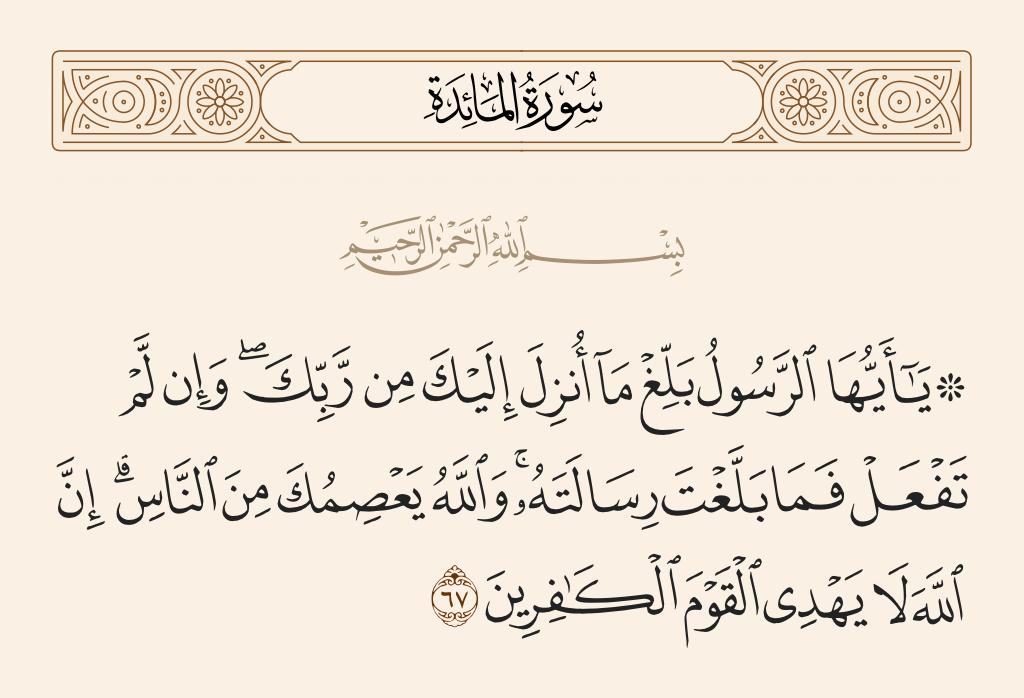 سُورَةُ المَائِدَةِ
بِسْمِ ٱللَّهِ ٱلرَّحْمَٰنِ ٱلرَّحِيمِ
۞ يَـٰٓأَيُّهَا ٱلرَّسُولُ بَلِّغْ مَآ أُنزِلَ إِلَيْكَ مِن رَّبِّكَ ۖ وَإِن لَّمْ
تَفْعَلْ فَمَا بَلَّغْتَ رِسَالَتَهُۥ ۚ وَٱللَّهُ يَعْصِمُكَ مِنَ ٱلنَّاسِ ۗ إِنَّ
ٱللَّهَ لَا يَهْدِى ٱلْقَوْمَ ٱلْكَـٰفِرِينَ ٦٧